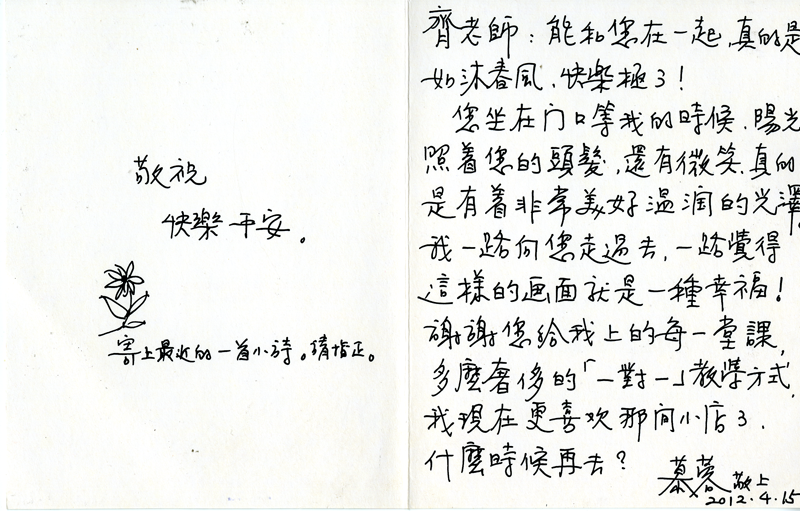 齊老師：能和您在一起，真的是
如沐春風、快樂極了！
您坐在门口等我的時候，陽光
照着您的頭髮，還有微笑，真的
是有着非常美好温润的光澤。
我一路向您走過去，一路覺得
這樣的画面就是一種幸福！
謝謝您給我上的每一堂課，
多麼奢侈的「一對一」教學方式，
我現在更喜欢那间小店了，
什麼時候再去？
慕蓉 敬上
2012.4.15
敬祝
快樂平安。
寄上最近的一首小詩。請指正。